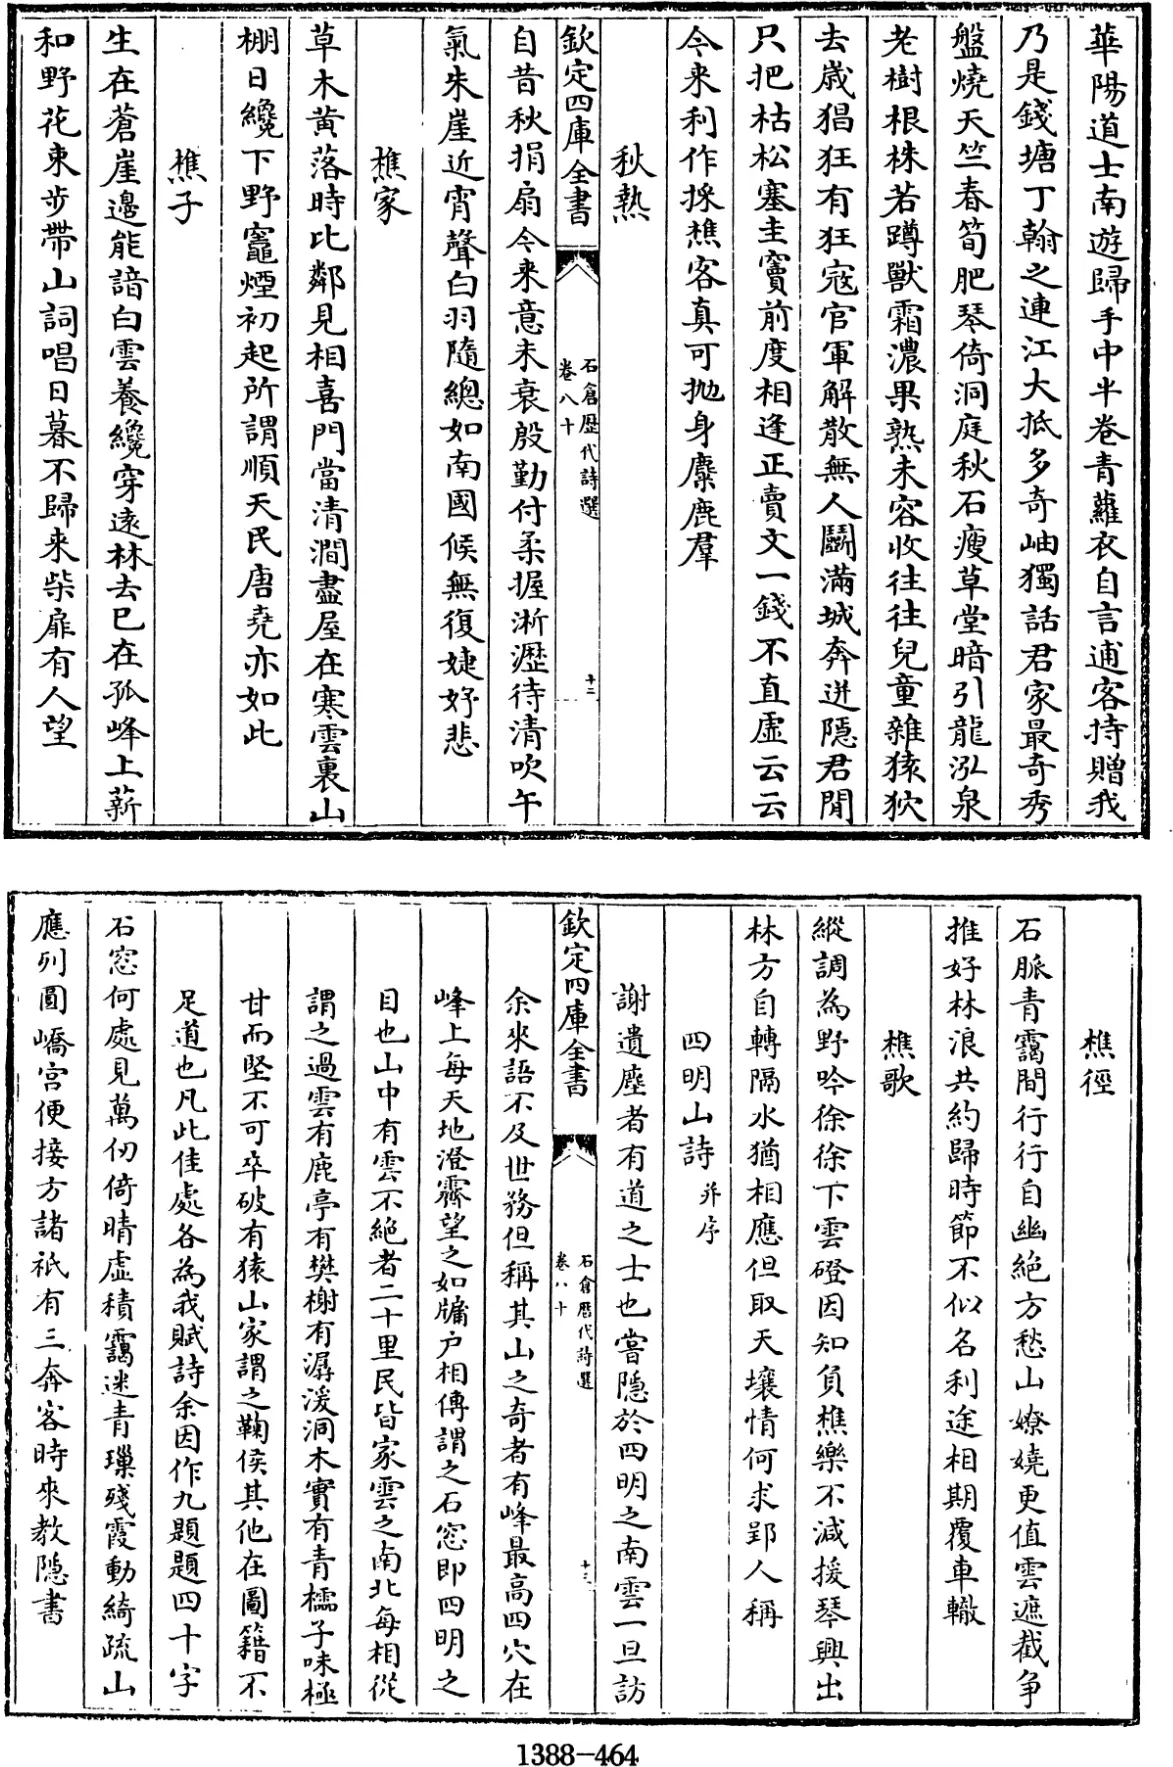 華陽道士南遊歸手中半卷青蘿衣自言逋客持贈我
乃是錢塘丁翰之連江大抵多奇岫獨話君家最奇秀
盤燒天竺春筍肥琴倚洞庭秋石瘦草堂暗引龍泓泉
老樹根株若蹲獸霜濃果熟未容收往往兒童雜猿狖
去歲猖狂有狂寇官軍解散無人鬭滿城奔迸隱君閒
只把枯松塞圭竇前度相逢正賣文一錢不直虛云云
今來利作採樵客真可抛身麋鹿羣
秋熱
欽定四庫全書
石倉歷代詩選
卷八十
十二
自昔秋捐扇今來意未衰殷勤付柔握淅瀝待清吹午
氣朱崖近宵聲白羽隨總如南國候無復婕妤悲
樵家
草木黄落時比鄰見相喜門當清澗盡屋在寒雲裏山
棚日纔下野竈煙初起所謂順天民唐堯亦如此
樵子
生在蒼崖邊能諳白雲養纔穿遠林去已在孤峰上薪
和野花束步帶山詞唱日暮不歸來柴扉有人望
樵徑
石脈青靄間行行自幽絶方愁山嫽嬈更值雲遮截争
推好林浪共約歸時節不似名利途相期覆車轍
樵歌
縱調為野吟徐徐下雲磴因知負樵樂不減援琴興出
林方自轉隔水猶相應但取天壤情何求郢人稱
四明山詩并序
謝遺塵者有道之士也嘗隱於四明之南雲一旦訪
欽定四庫全書
石倉歷代詩選
卷八十
十三
余來語不及世務但稱其山之奇者有峰最高四穴在
峰上每天地澄霽望之如牖户相傳謂之石窓即四明之
目也山中有雲不絶者二十里民皆家雲之南北每相從
謂之過雲有鹿亭有樊榭有潺湲洞木實有青櫺子味極
甘而堅不可卒破有猿山家謂之鞠侯其他在圖籍不
足道也凡此佳處各為我賦詩余因作九題題四十字
石窓何處見萬仞倚晴虛積靄迷青璅殘霞動綺疏山
應列圓嶠宮便接方諸祇有三奔客時來教隱書
1388-464